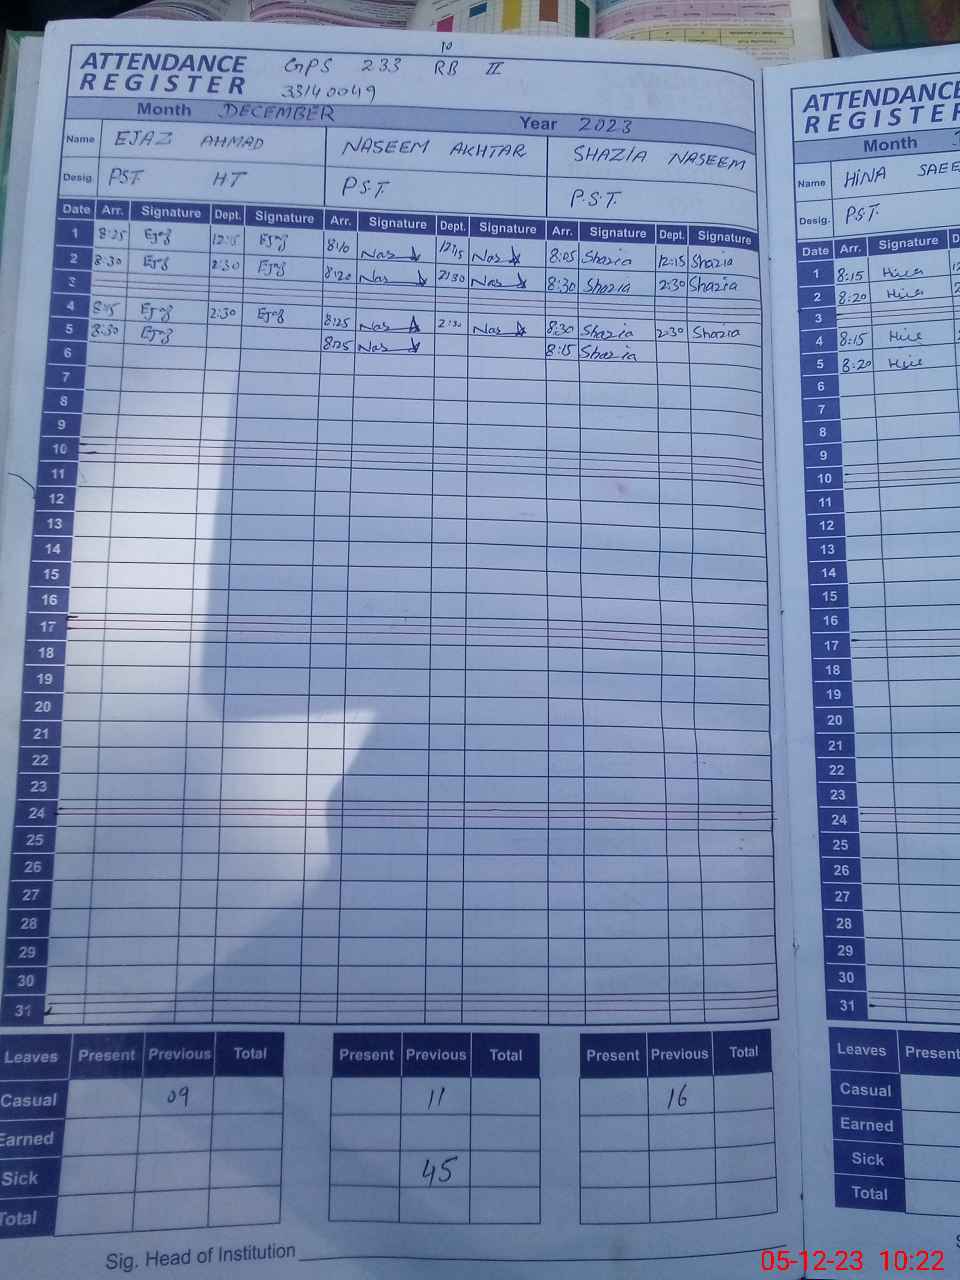 10
ATTENDANCE REGISTER
GPS 233 RB II
33140049
Month DECEMBER Year 2023
Name EJAZ AHMAD NASEEM AKHTAR SHAZIA NASEEM
Desig. PST. HT P.S.T. P.S.T.
Date Arr. Signature Dept. Signature Arr. Signature Dept. Signature Arr. Signature Dept. Signature
1 8:25 Ejaz 12:15 Ejaz 8:10 Nas 12:15 Nas 8:05 Shazia 12:15 Shazia
2 8:30 Ejaz 2:30 Ejaz 8:20 Nas 2:30 Nas 8:30 Shazia 2:30 Shazia
3
4 8:15 Ejaz 2:30 Ejaz 8:25 Nas 2:30 Nas 8:30 Shazia 2:30 Shazia
5 8:30 Ejaz 8:25 Nas 8:15 Shazia
6
7
8
9
10
11
12
13
14
15
16
17
18
19
20
21
22
23
24
25
26
27
28
29
30
31
Leaves Present Previous Total Present Previous Total Present Previous Total
Casual 09 11 16
Earned
Sick 45
Total
Sig. Head of Institution
ATTENDANCE
REGISTER
Month
Name HINA
Desig. P.S.T.
Date Arr. Signature
1 8:15
2 8:20
3
4 8:15
5 8:20
6
7
8
9
10
11
12
13
14
15
16
17
18
19
20
21
22
23
24
25
26
27
28
29
30
31
Leaves Present
Casual
Earned
Sick
Total
05-12-23 10:22